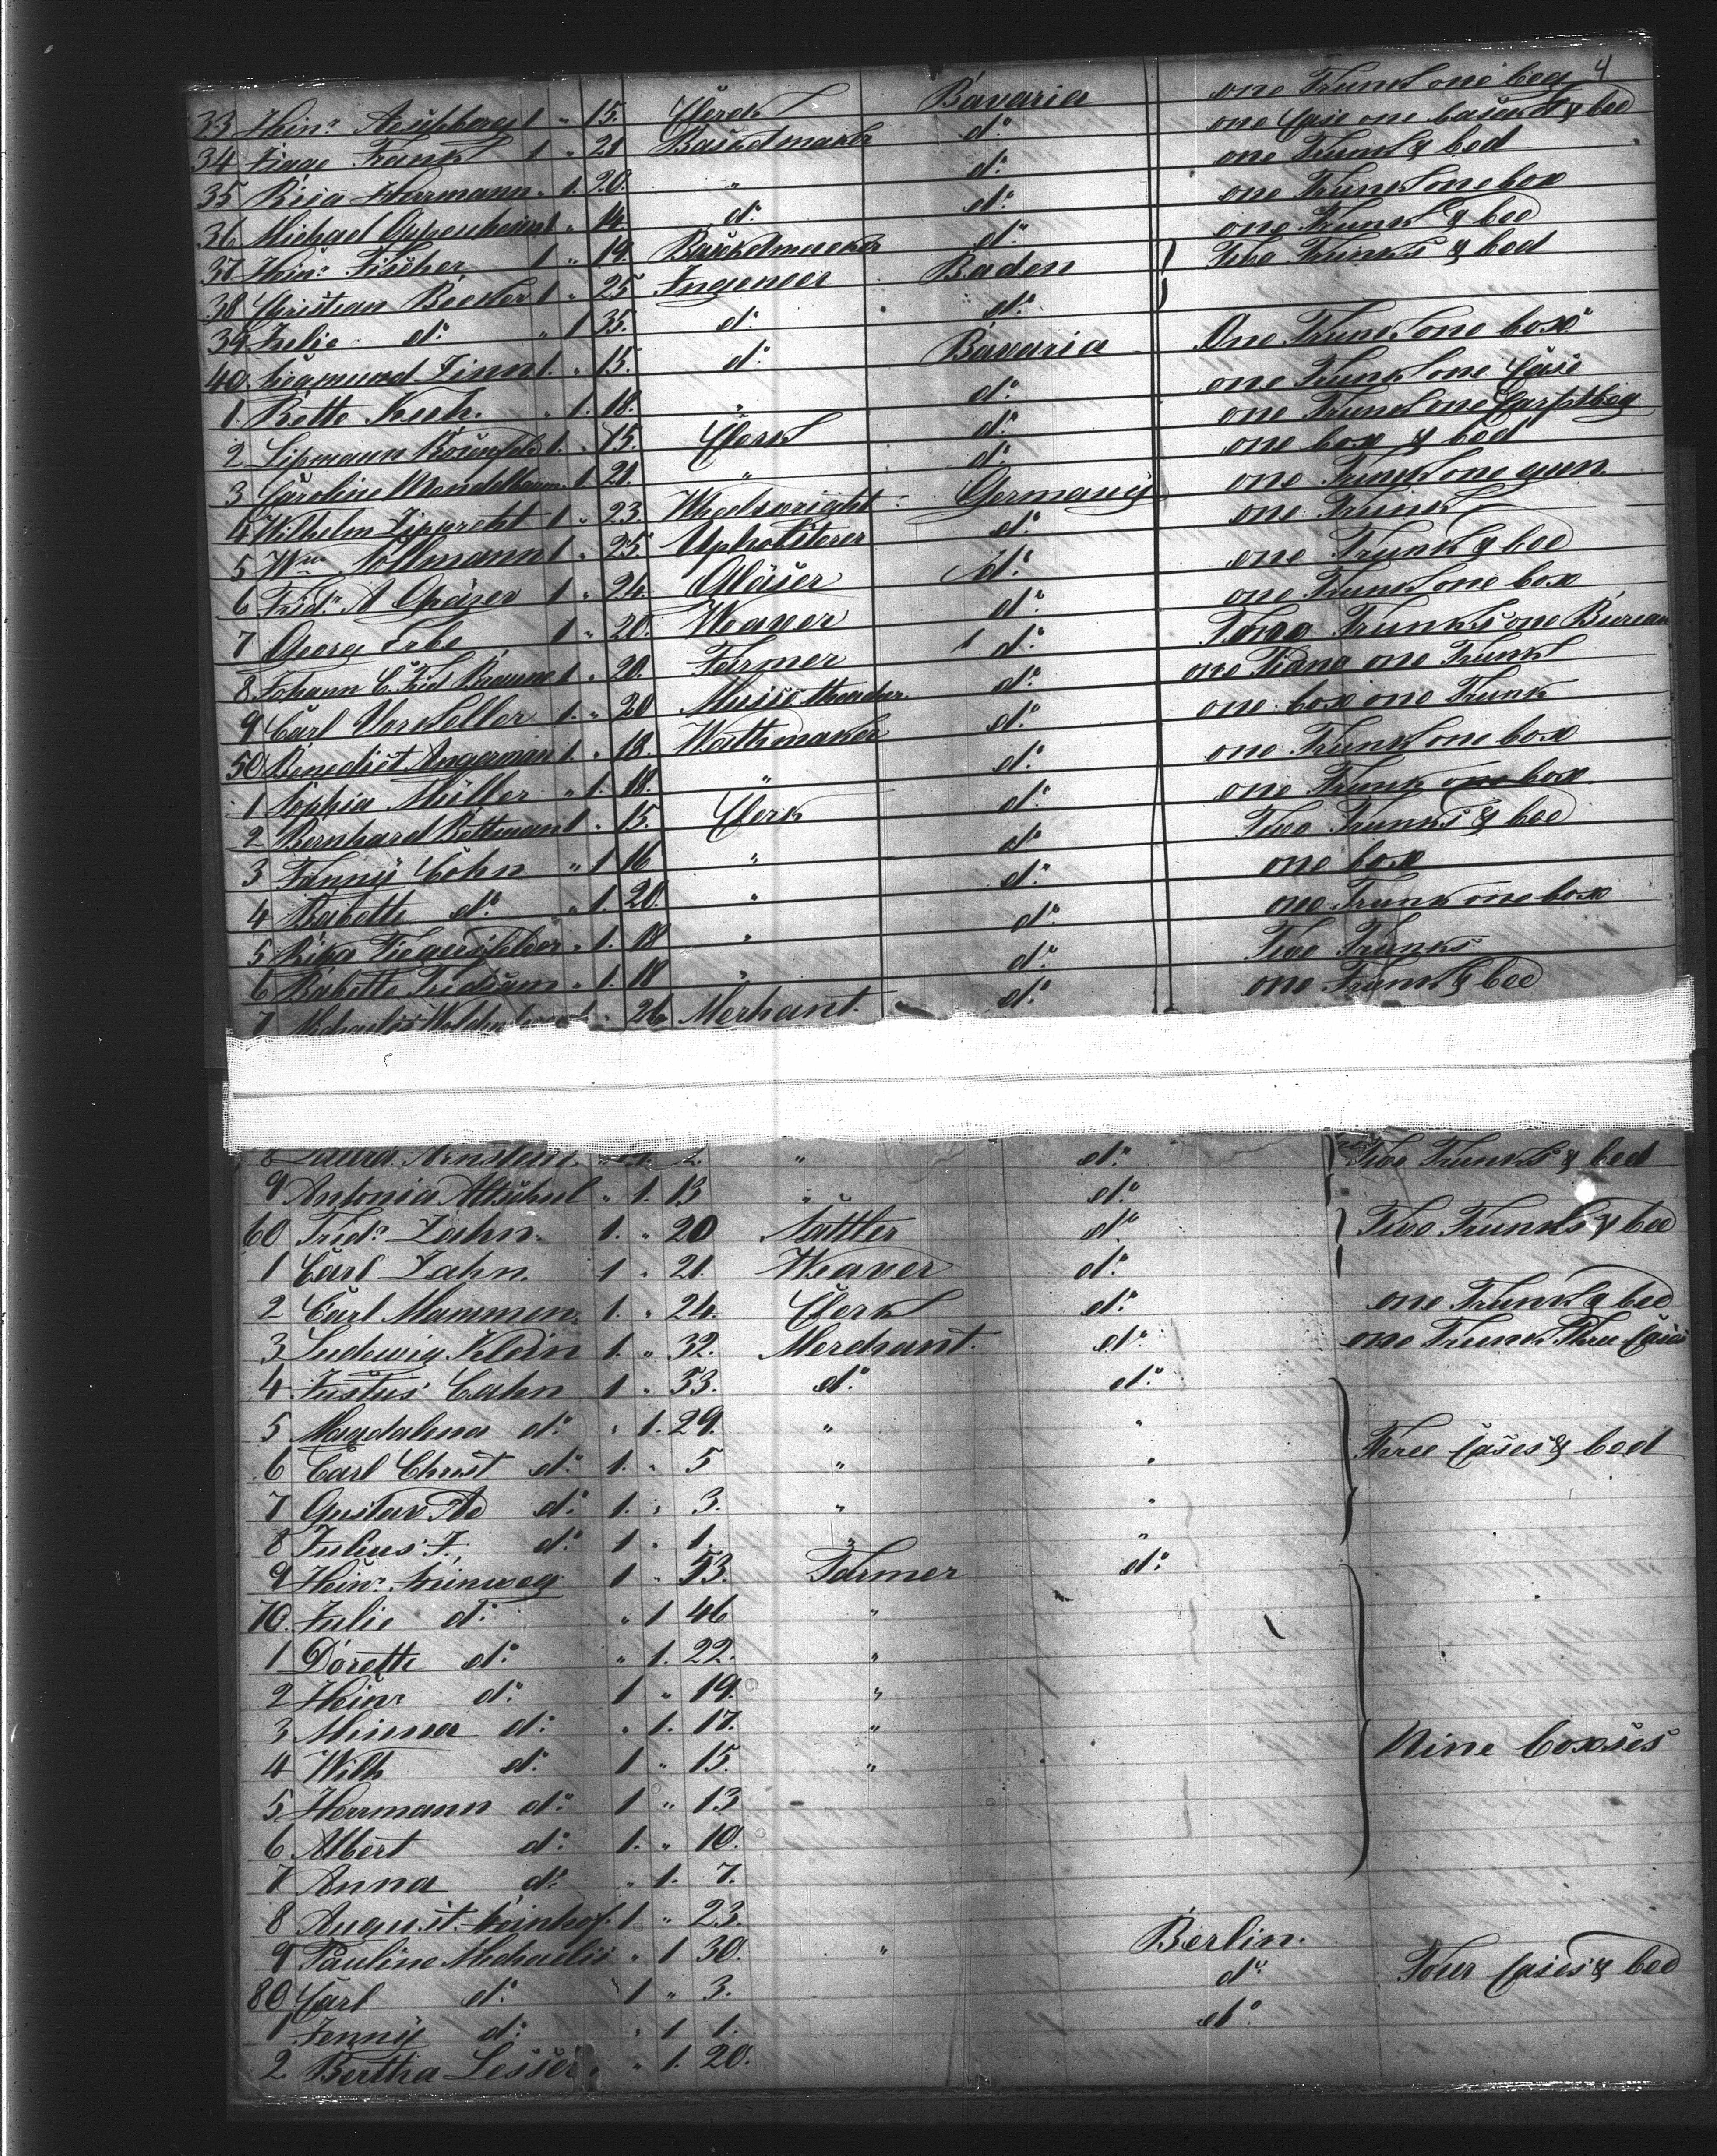 4
33 Hinr. 1 " 15. Clerk Bavaria one Trunk one beg
34 Frank 1 " 21 d:o one Case one & bed
35 Herrmann " 1. 20. " d:o one Trunk & bed
36 Michael Oppenheimer 1 " 14. d:o d:o one Trunk one box
37 Hinr. Fischer 1 " 19. d:o one Trunk & bed
38 Christian Becker 1 " 25 Ingeneer Baden Two Trunks & bed
39 Julie d:o " 1 35. d:o d:o
40 Siegmund Zinn 1. " 15. d:o Bavaria One Trunk one box
1. Bette Kuh. " 1. 18. " d:o one Trunk one Case
2 Lipmann Rosenfeld 1. " 15. Clerk d:o one Trunk one Carptbeg
3 Caroline Mendelbaum " 1 21. " d:o one box & bed
4 Wilhelm 1 " 23. Whelwright Germany one Trunk one gun
5 Wm Sollmann 1. " 25. Upholsterer d:o one Trunk
6 Frid: A 1 " 24. Gläser d:o one Trunk & bed
7 Georg Erbe 1 " 20. Weaver d:o one Trunk one box
8 Johann C. Frid Braune 1 " 20. Farmer d:o Two Trunks one Bureau
9 Carl 1. " 20 Musicteacher d:o one Piano one Trunk
50 Benedict Angerman 1. " 18. d:o one box one Trunk
1 Sophia Müller " 1. 18. " d:o one Trunk one box
2 Bernhard Bettmann 1 " 15. Clerk d:o one Trunk one box
3 Fanny Cohn " 1 16 " d:o Two Trunks & bed
4 Babette d:o " 1. 20. " d:o one box
5 Rika " 1. 18 " d:o one Trunk one box
6 Babette " 1. 18 " d:o Two Trunks
7 Michaelis 1 " 26 Merhant. d:o one Trunk & bed
8 Laura Arnstein " 1. 2. " d:o Two Trunks & bed
9 Antonia Altschul " 1. 13 " d:o
60 Frid: Zahn. 1. " 20 Sattler d:o Two Trunks & bed
1 Carl Zahn. 1 " 21. Weaver d:o
2 Carl Mammen. 1. " 24. Clerk d:o one Trunk & bed
3 Ludewig Klein 1. " 32. Merchant. d:o one Trunk Three Cases
4 Justus Cahn 1 " 33. d:o d:o
5 Magdalena d:o " 1. 29. " " Three Cases & bed
6 Carl Christ d:o 1. " 5 " "
7 Gustav Ad d:o 1. " 3. " "
8 Julius F. d:o 1 " 1. " "
9 Heinr. Steinweg 1 " 53. Farmer d:o
70. Julie d:o " 1 46 "
1 Dorette d:o " 1. 22. "
2 Heinr d:o 1 " 19. "
3 Minna d:o " 1. 17. "
4 Wilh d:o 1 " 15. " Nine boxses
5 Herrmann d:o 1 " 13
6 Albert d:o 1. " 10.
7 Anna d:o " 1. 7.
8 August. 1 " 23.
9 Pauline Michaelis " 1 30. " Berlin.
80 Carl d:o 1 " 3. d:o Four Cases & bed
1 Jenny d:o " 1 1. d:o
2. Bertha Lesser. " 1. 20.